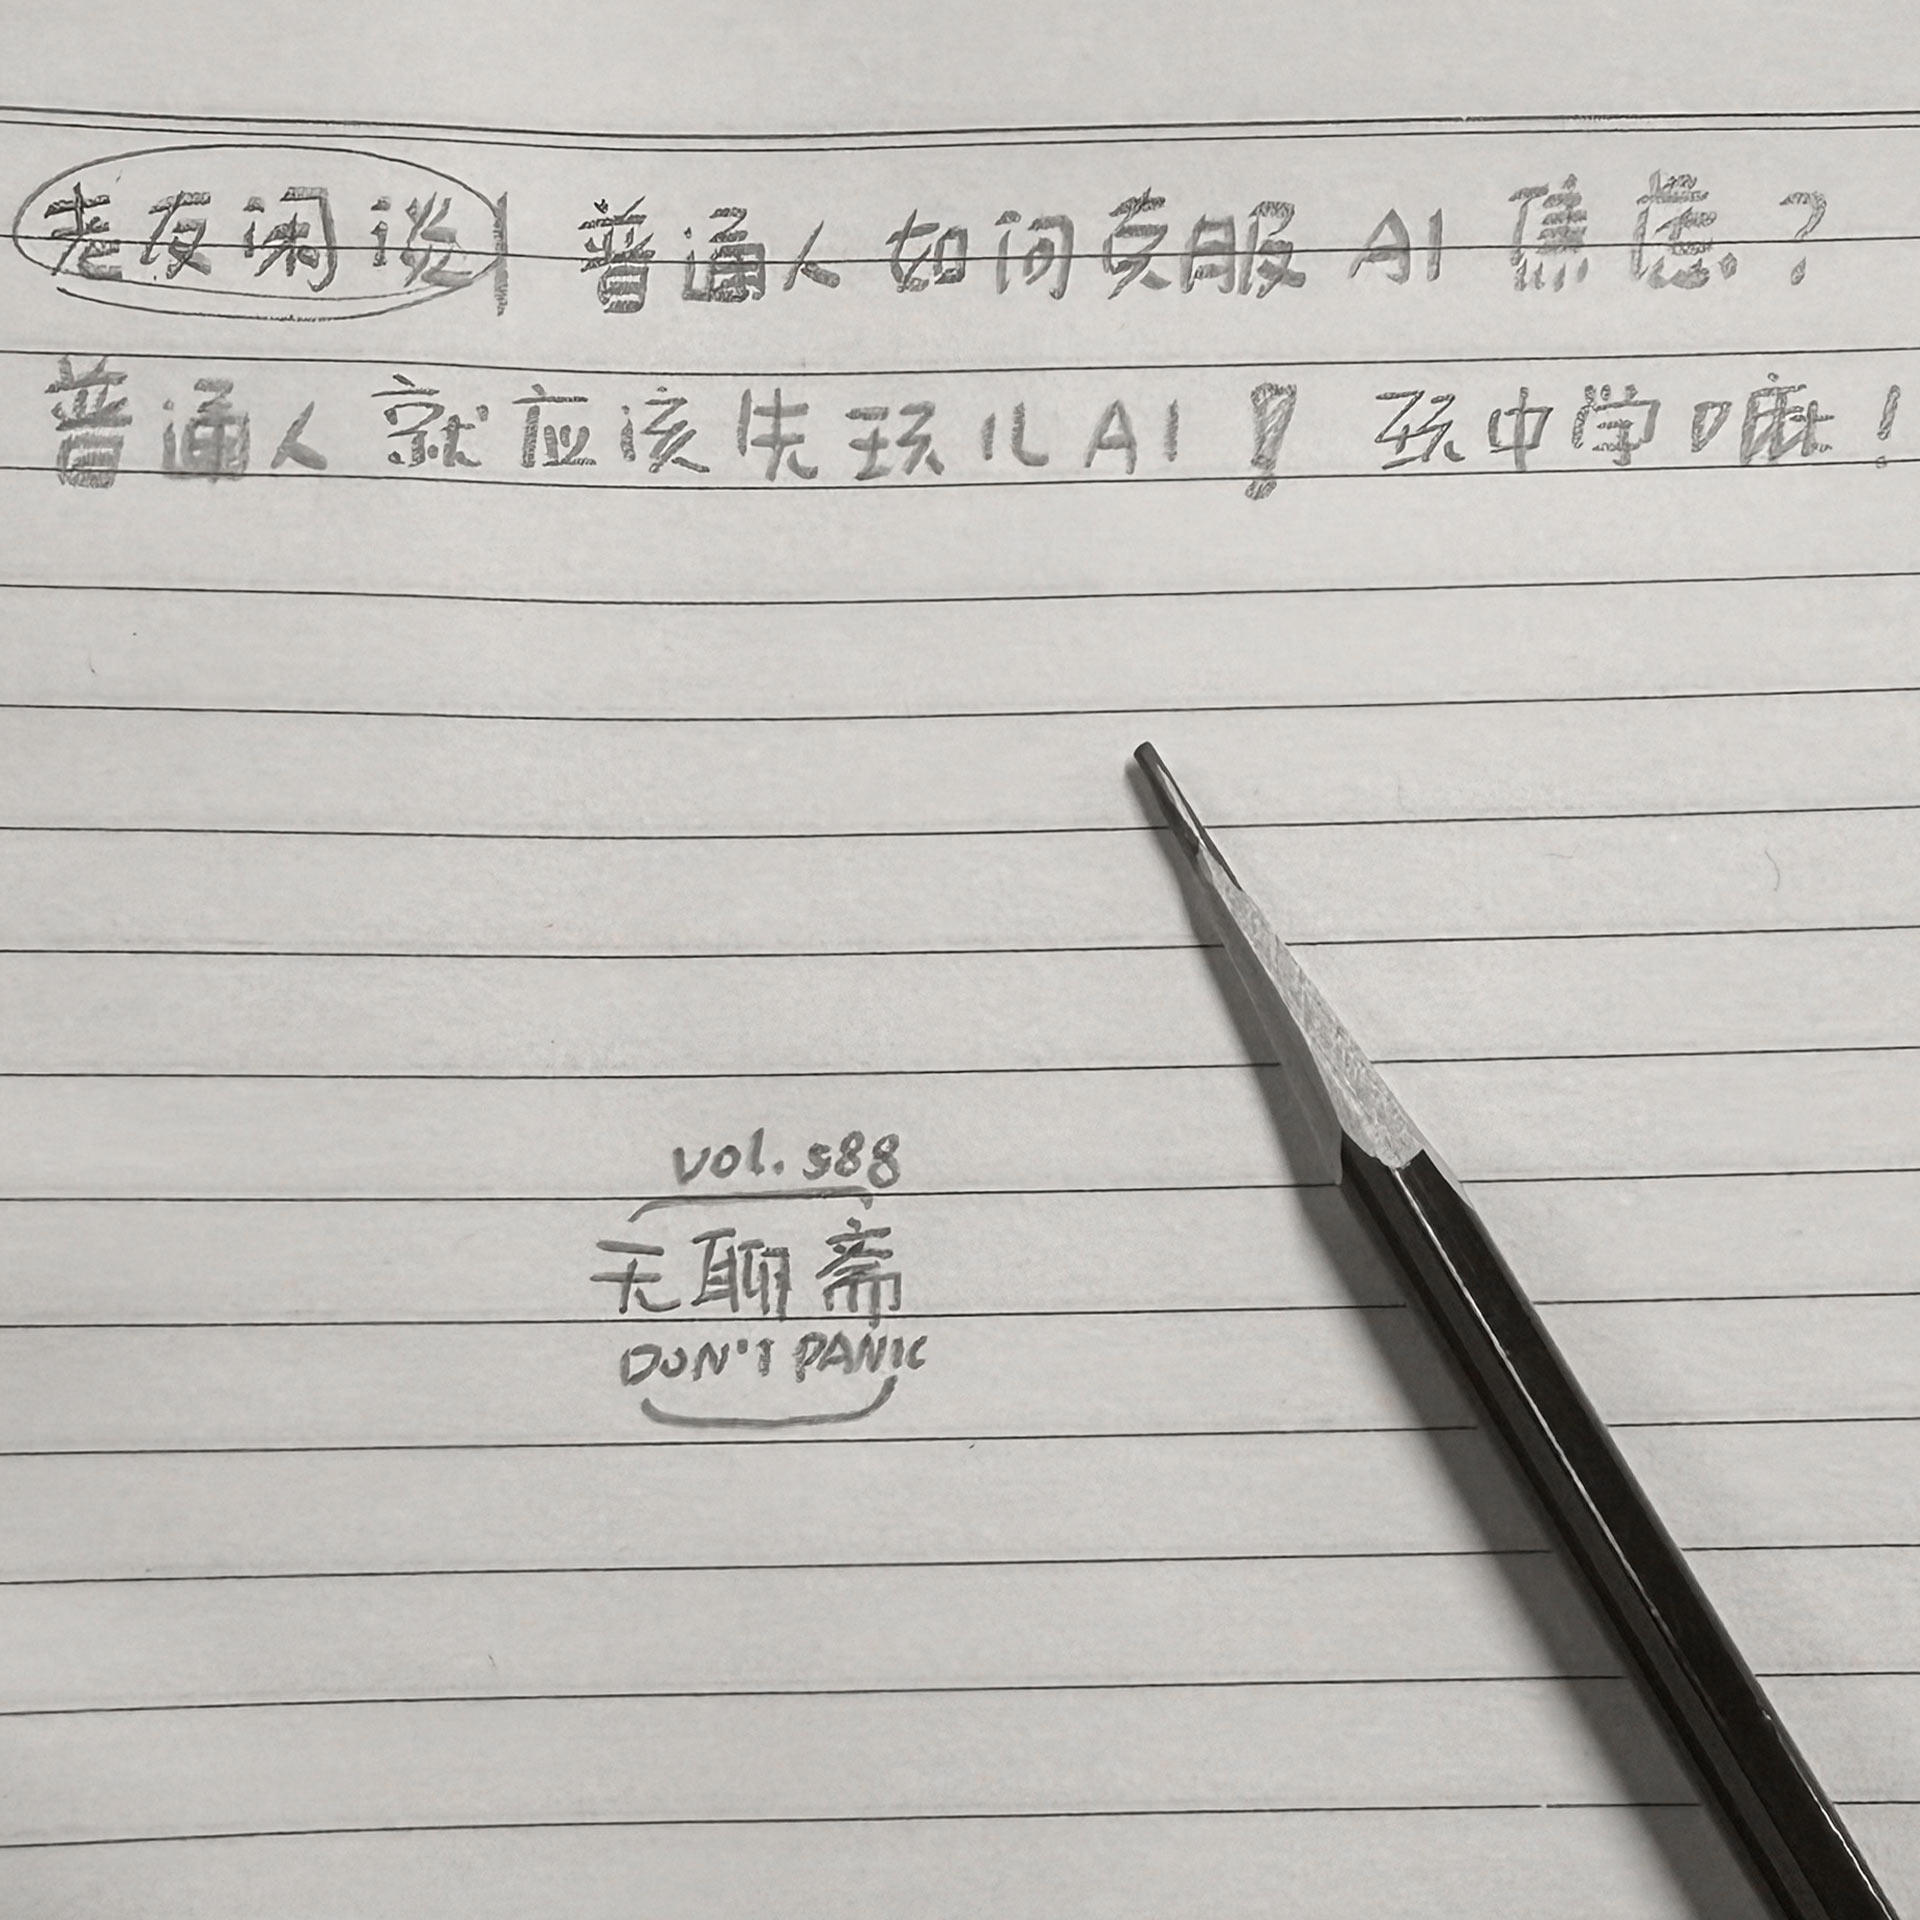 老友闲谈| 普通人如何克服AI焦虑?
普通人就应该先玩儿AI! 玩中学嘛!
vol. s88
无聊斋
DON'T PANIC